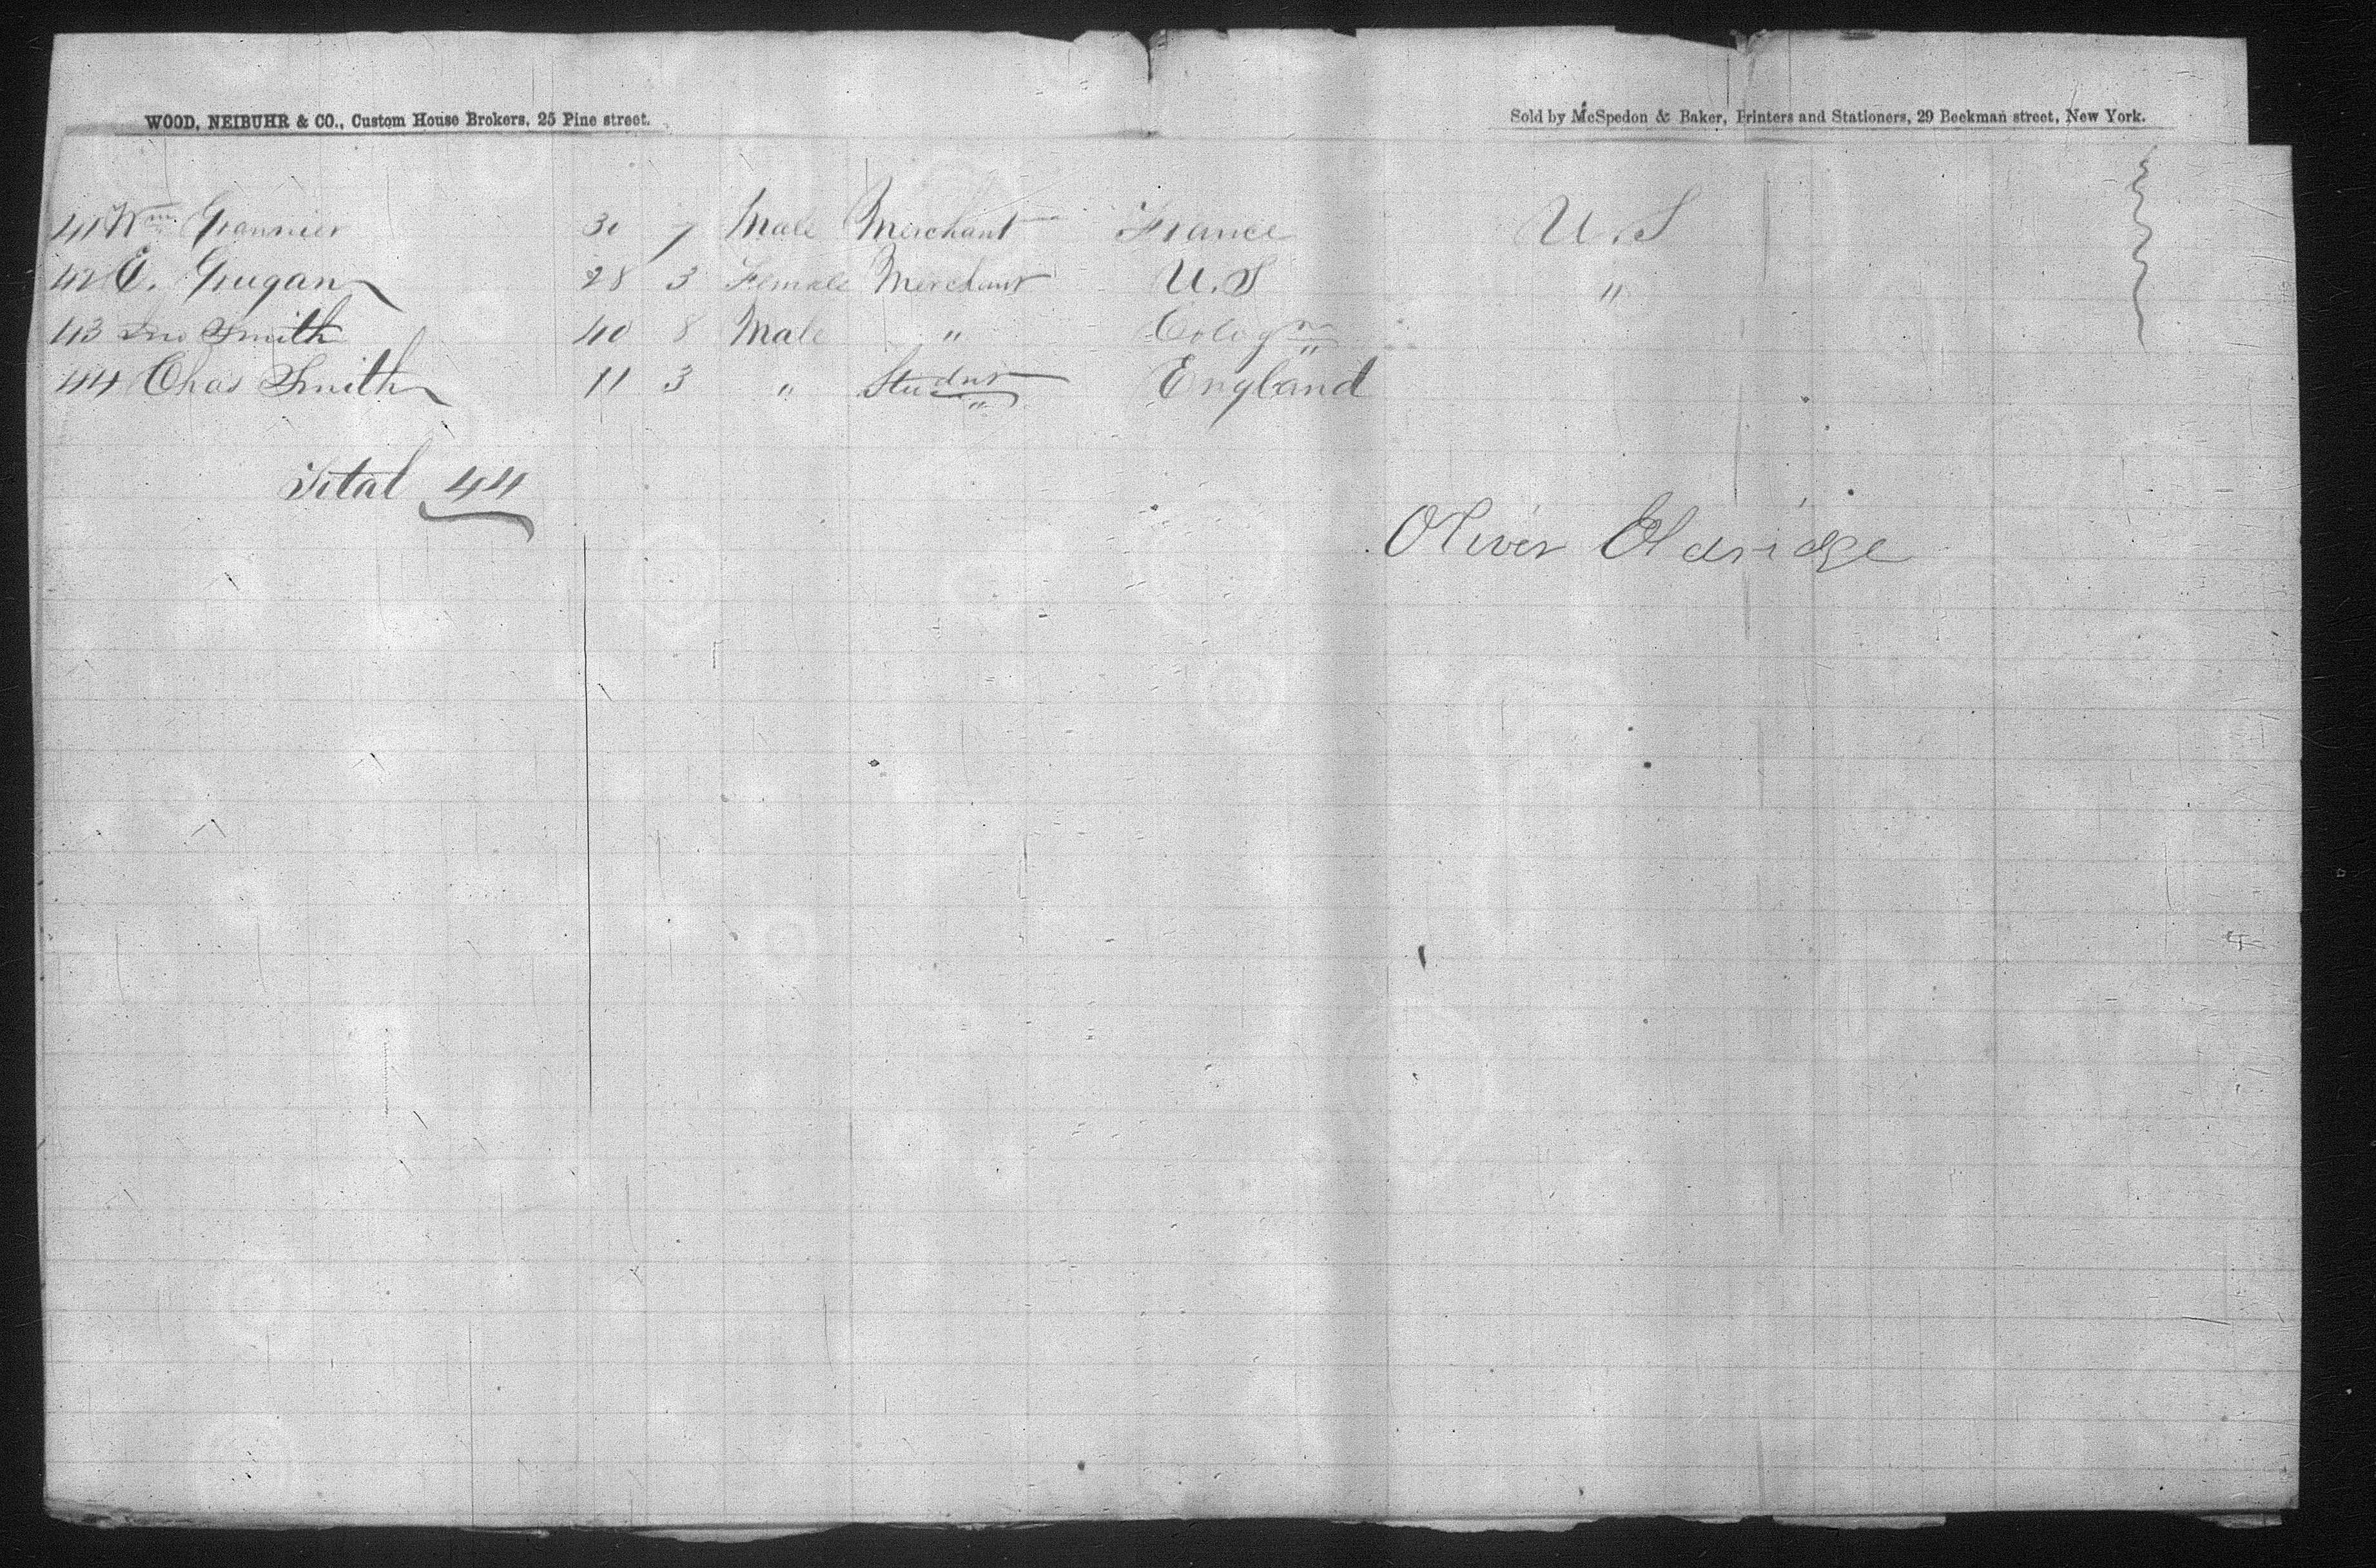 WOOD, NEIBUHR & CO., Custom House Brokers, 25 Pine street.
Sold by McSpedon & Baker, Printers and Stationers, 29 Beekman street, New York.
41 Wm Grannier 30 7 Male Merchant France U.S
42 E. Grugan 28 3 Female Merchant U.S "
43 Jno Smith 40 8 Male " Cologn
44 Chas Smith 11 3 " Student England
Total 44
Oliver Eldridge